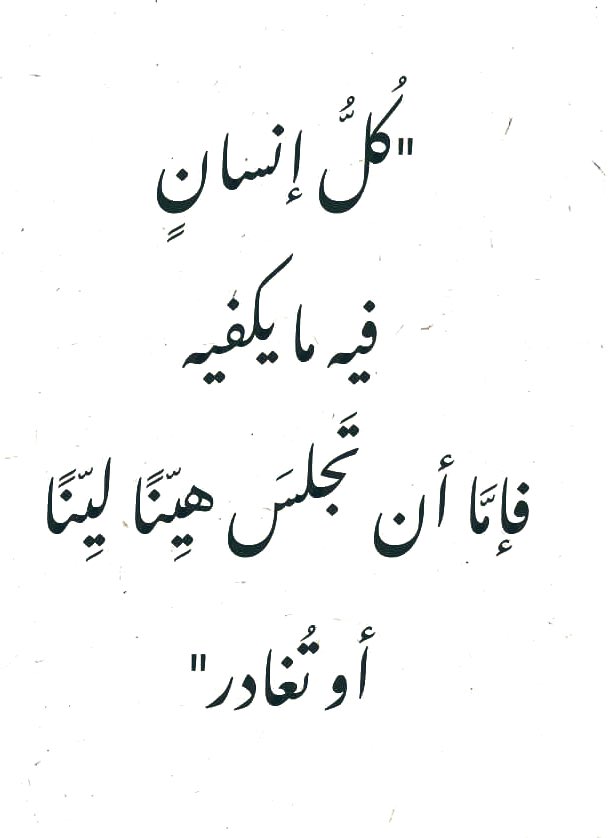 "كُلُّ إنسانٍ
فيه ما يكفيه
فإمَّا أن تَجلسَ هيِّنًا ليِّنًا
أو تُغادر"